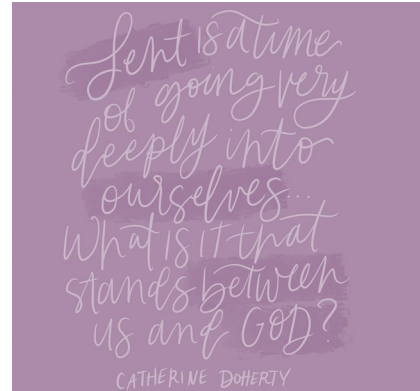 Lent is a time
of going very
deeply into
ourselves...
What is it that
stands between
us and GOD?
CATHERINE DOHERTY